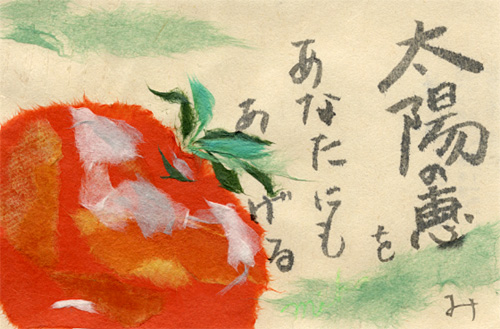 太陽の恵を
あなたにも
あげる
み